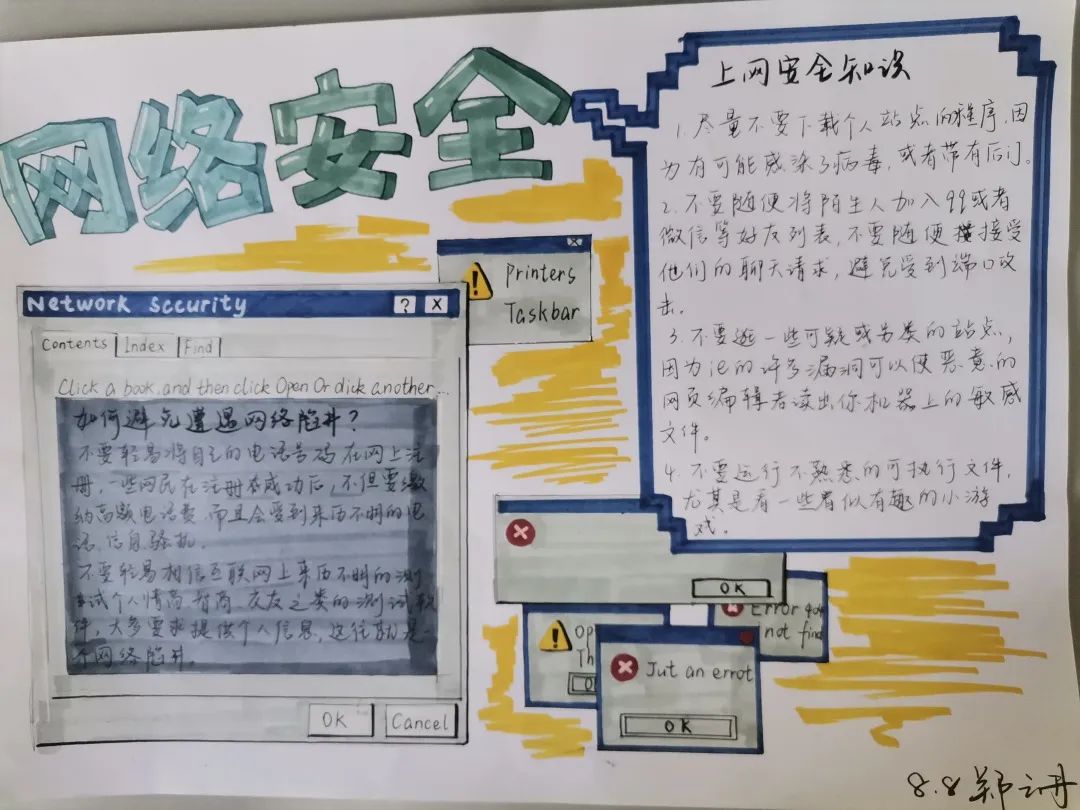 网络安全
上网安全知识
1. 尽量不要下载个人站点的程序,因
为有可能感染了病毒,或者带有后门。
2. 不要随便将陌生人加入qq或者
微信等好友列表,不要随便接受
他们的聊天请求,避免受到端口攻
击。
3. 不要逛一些可疑或另类的站点,
因为ie的许多漏洞可以使恶意的
网页编辑者读出你机器上的敏感
文件。
4. 不要运行不熟悉的可执行文件,
尤其是看一些看似有趣的小游
戏。
Printers
Taskbar
Network sccurity ? X
Contents Index Find
Click a book, and then click Open Or dick another...
如何避免遭遇网络陷井?
不要轻易将自己的电话号码在网上注
册,一些网民在注册成功后,不但要缴
纳高额电话费,而且会受到来历不明的电
话、信息骚扰。
不要轻易相信互联网上来历不明的测
试个人情商、智商、交友之类的测试软
件,大多要求提供个人信息,这往就是一
个网络陷井。
OK Cancel
OK
Error
not find
Op
Th
Jut an errot
OK
8.8 郑